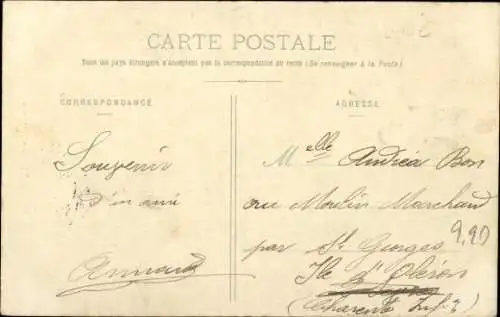 CARTE POSTALE
Tous les pays étrangers n'acceptent pas la correspondance au recto (Se renseigner à la Poste)
CORRESPONDANCE
ADRESSE
Souvenir
d'un ami
Armand
Melle Andréa Bon
au Moulin Marchand
par St Georges
Ile d'Oléron
(Charente Inf.)
9,90